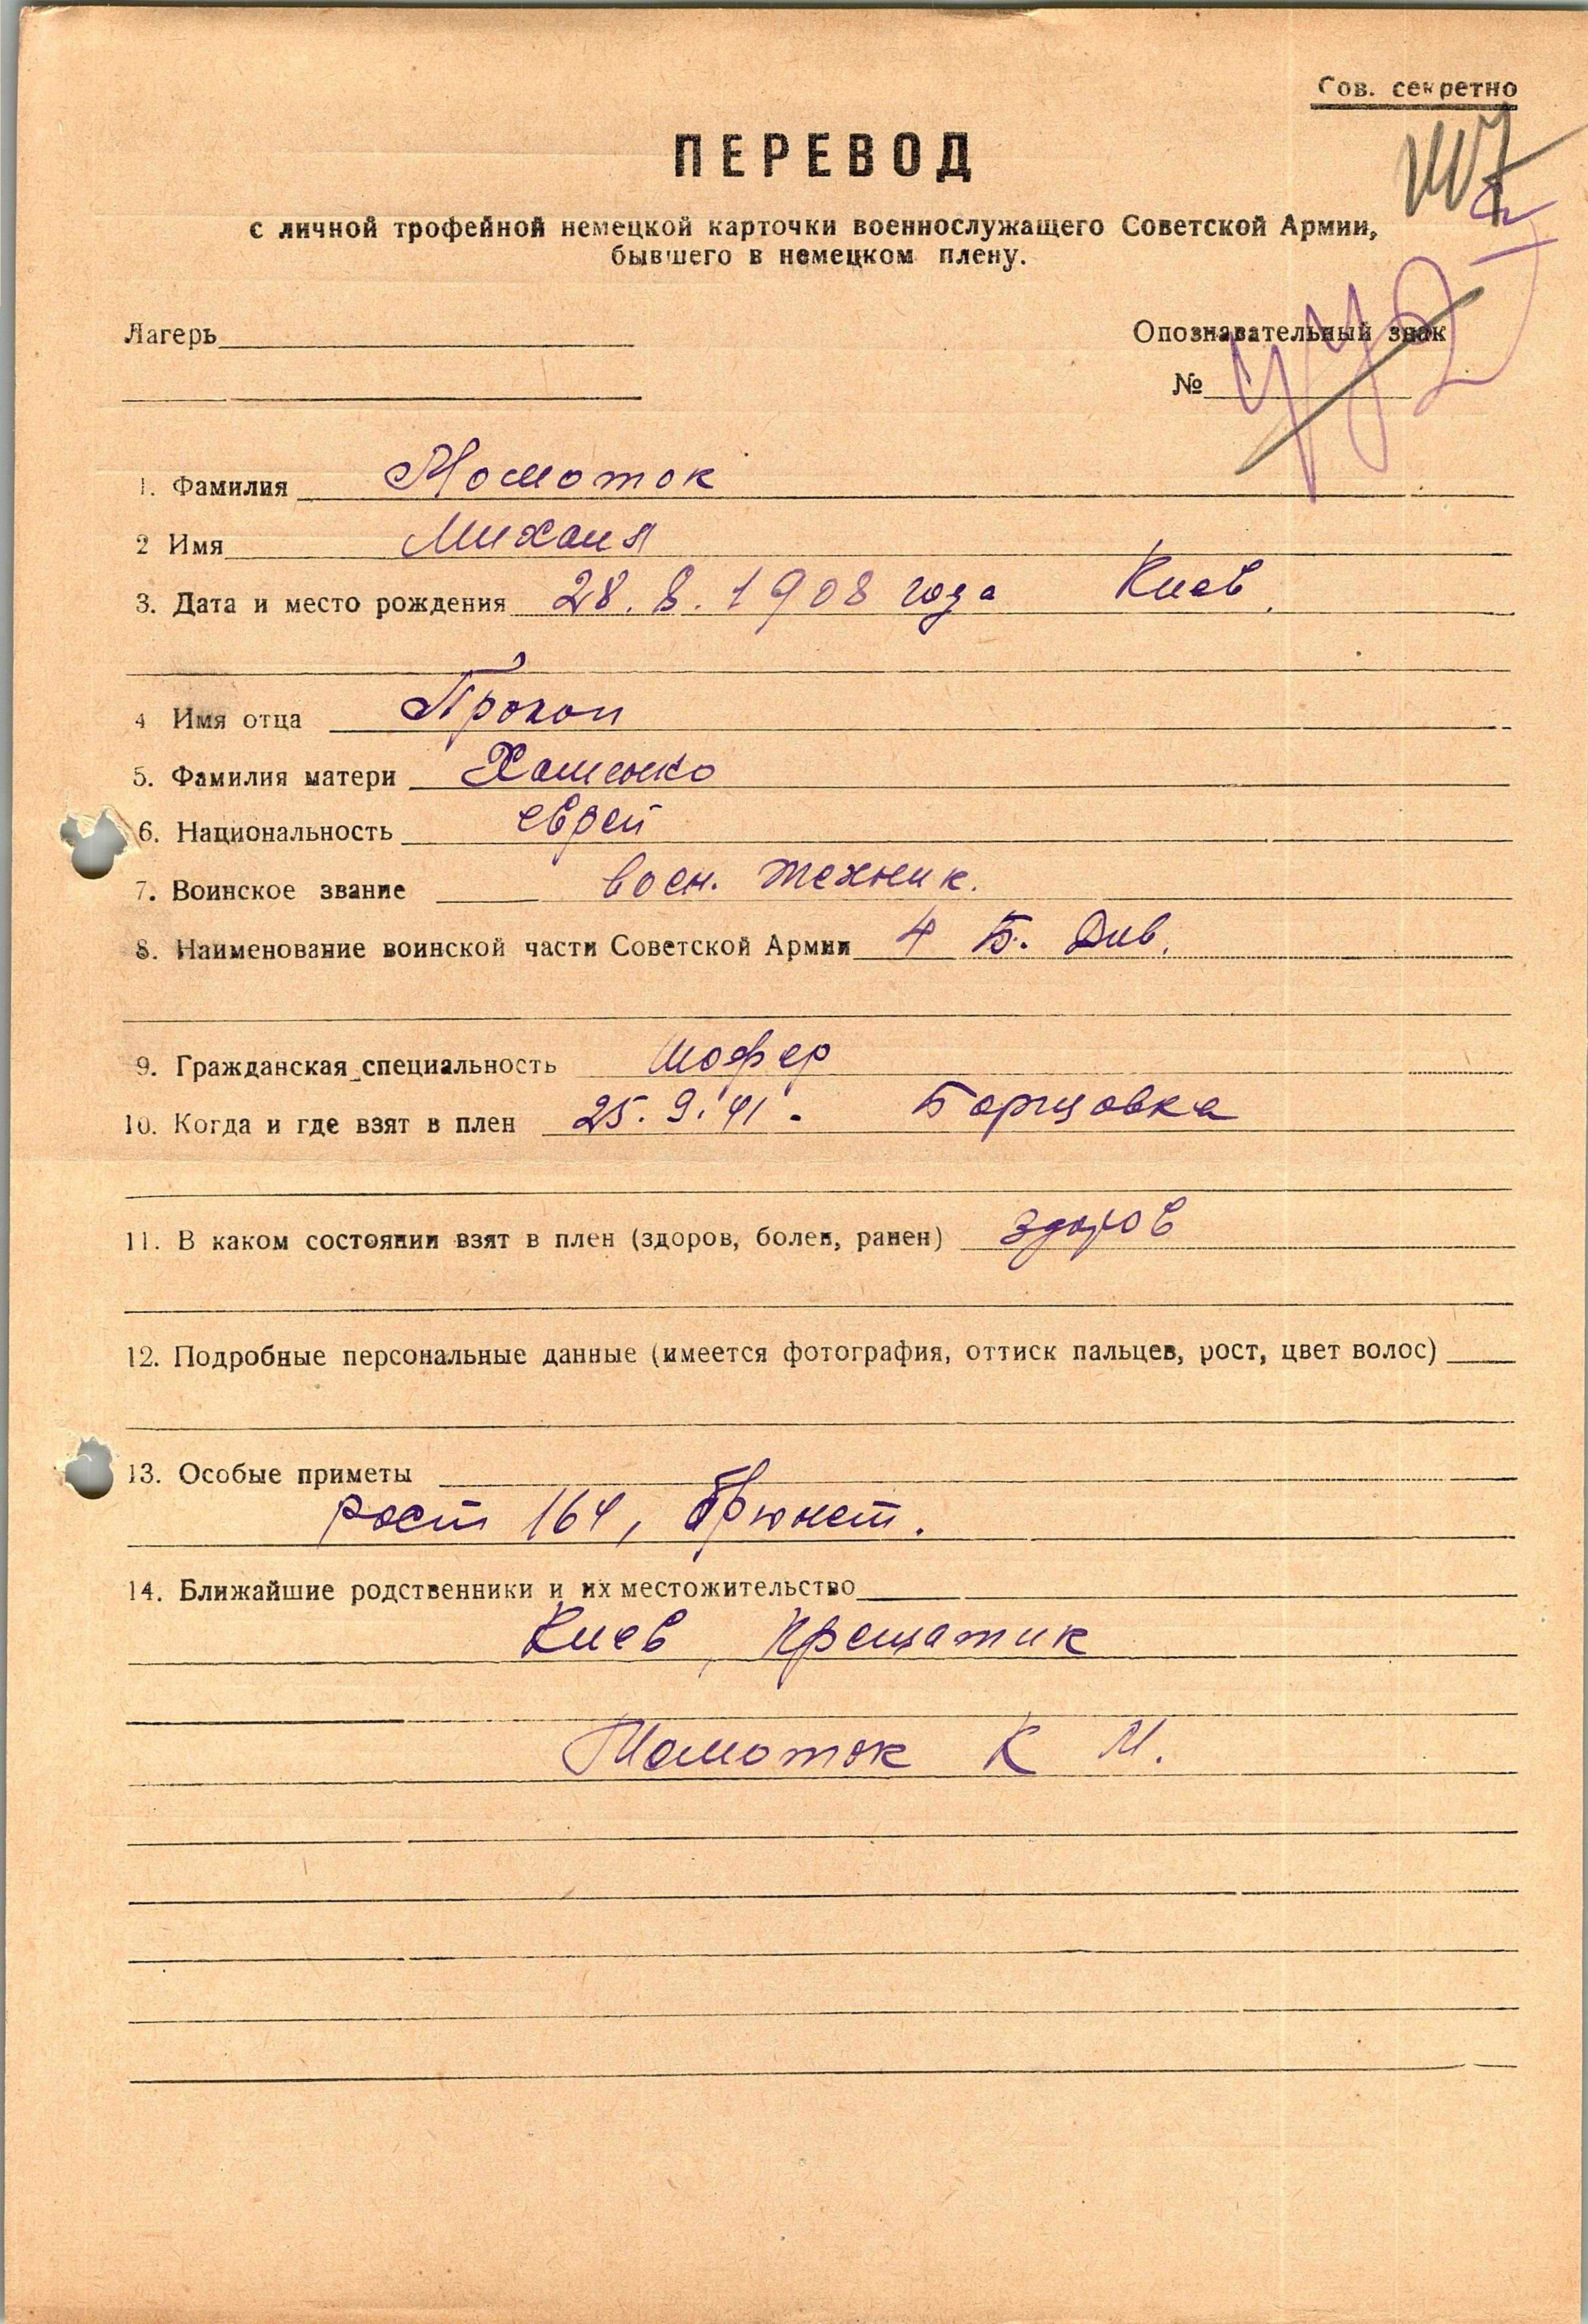 Сов. секретно
ПЕРЕВОД
с личной трофейной немецкой карточки военнослужащего Советской Армии,
бывшего в немецком плену.
Лагерь
Опознавательный знак
№
442
1. Фамилия Момоток
2 Имя Михаил
3. Дата и место рождения 28. 8. 1908 года Киев.
4 Имя отца Прокоп
5. Фамилия матери Хоменко
6. Национальность еврей
7. Воинское звание воен. техник.
8. Наименование воинской части Советской Армии 4 Б. Див.
9. Гражданская специальность Шофер
10. Когда и где взят в плен 25. 9. 41. Борщовка
11. В каком состоянии взят в плен (здоров, болен, ранен) здоров
12. Подробные персональные данные (имеется фотография, оттиск пальцев, рост, цвет волос)
13. Особые приметы
рост 164, брюнет.
14. Ближайшие родственники и их местожительство
Киев, Крещатик
Момоток К М.